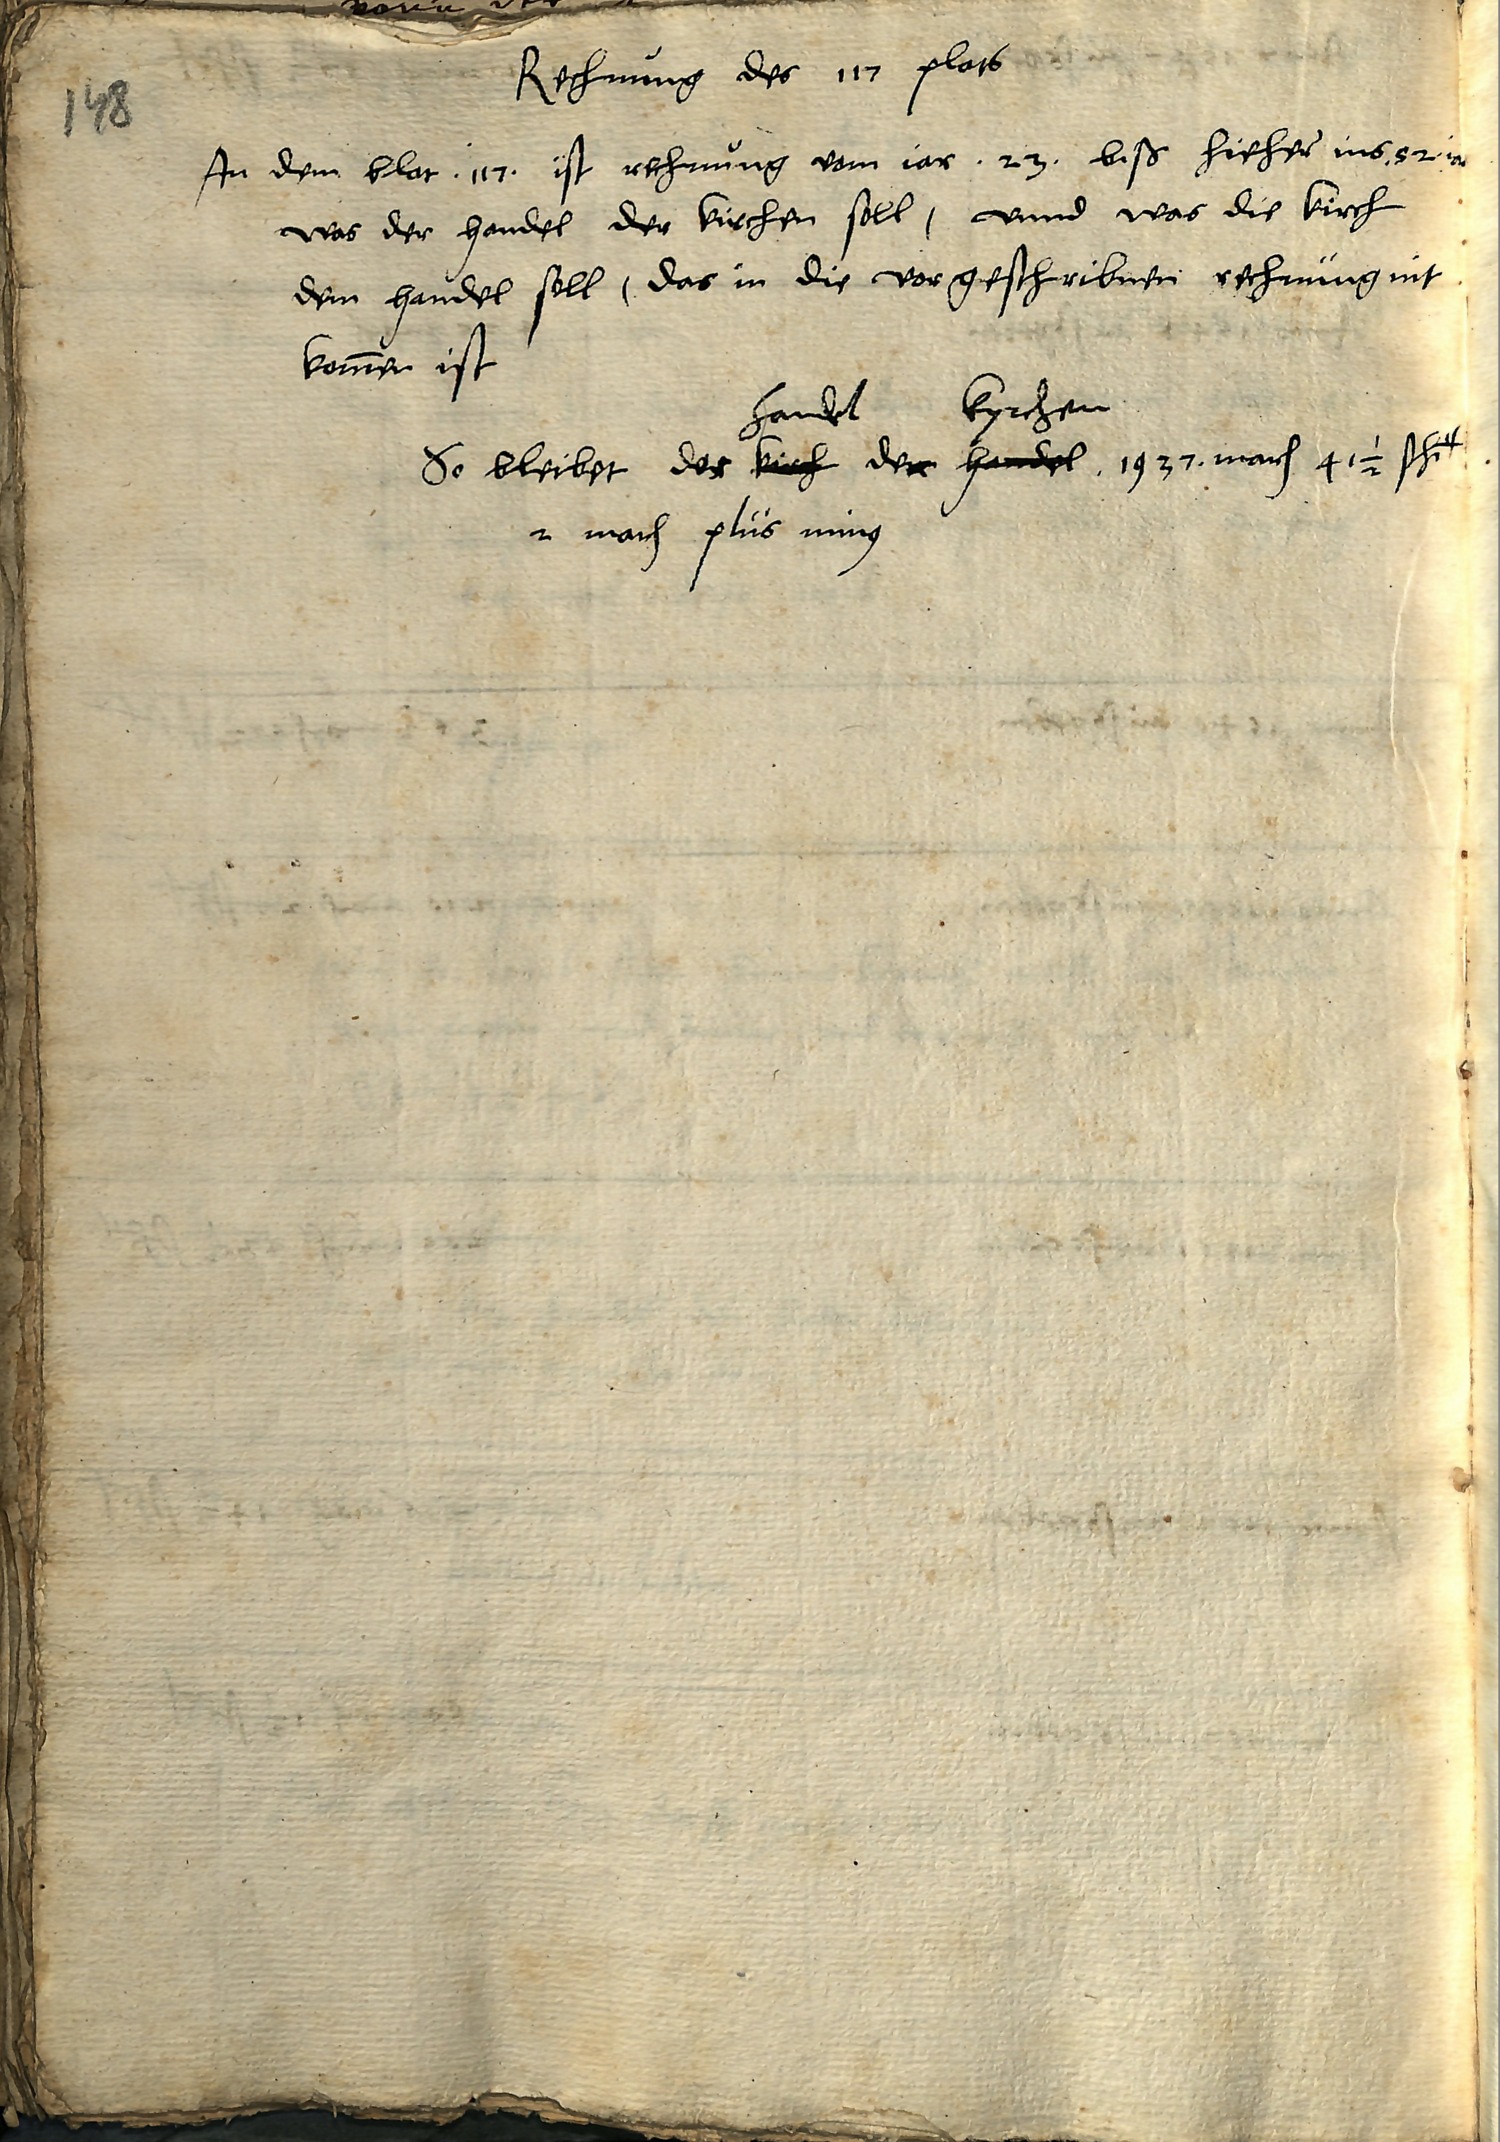 148
Rechnung des 117 plats
An dem blat . 117 . ist rechnung vom iar . 23 . biss hieher ins . 52 . iar
was der handel der kirchen soll / vnnd was die kirch
dem handel soll / das in die vorgeschribnen rechnung nit
kom̄en ist
handel kyrchen
So bleibet der kirch der handel . 1937 . march 41 1/2 sch
2 march plus minus